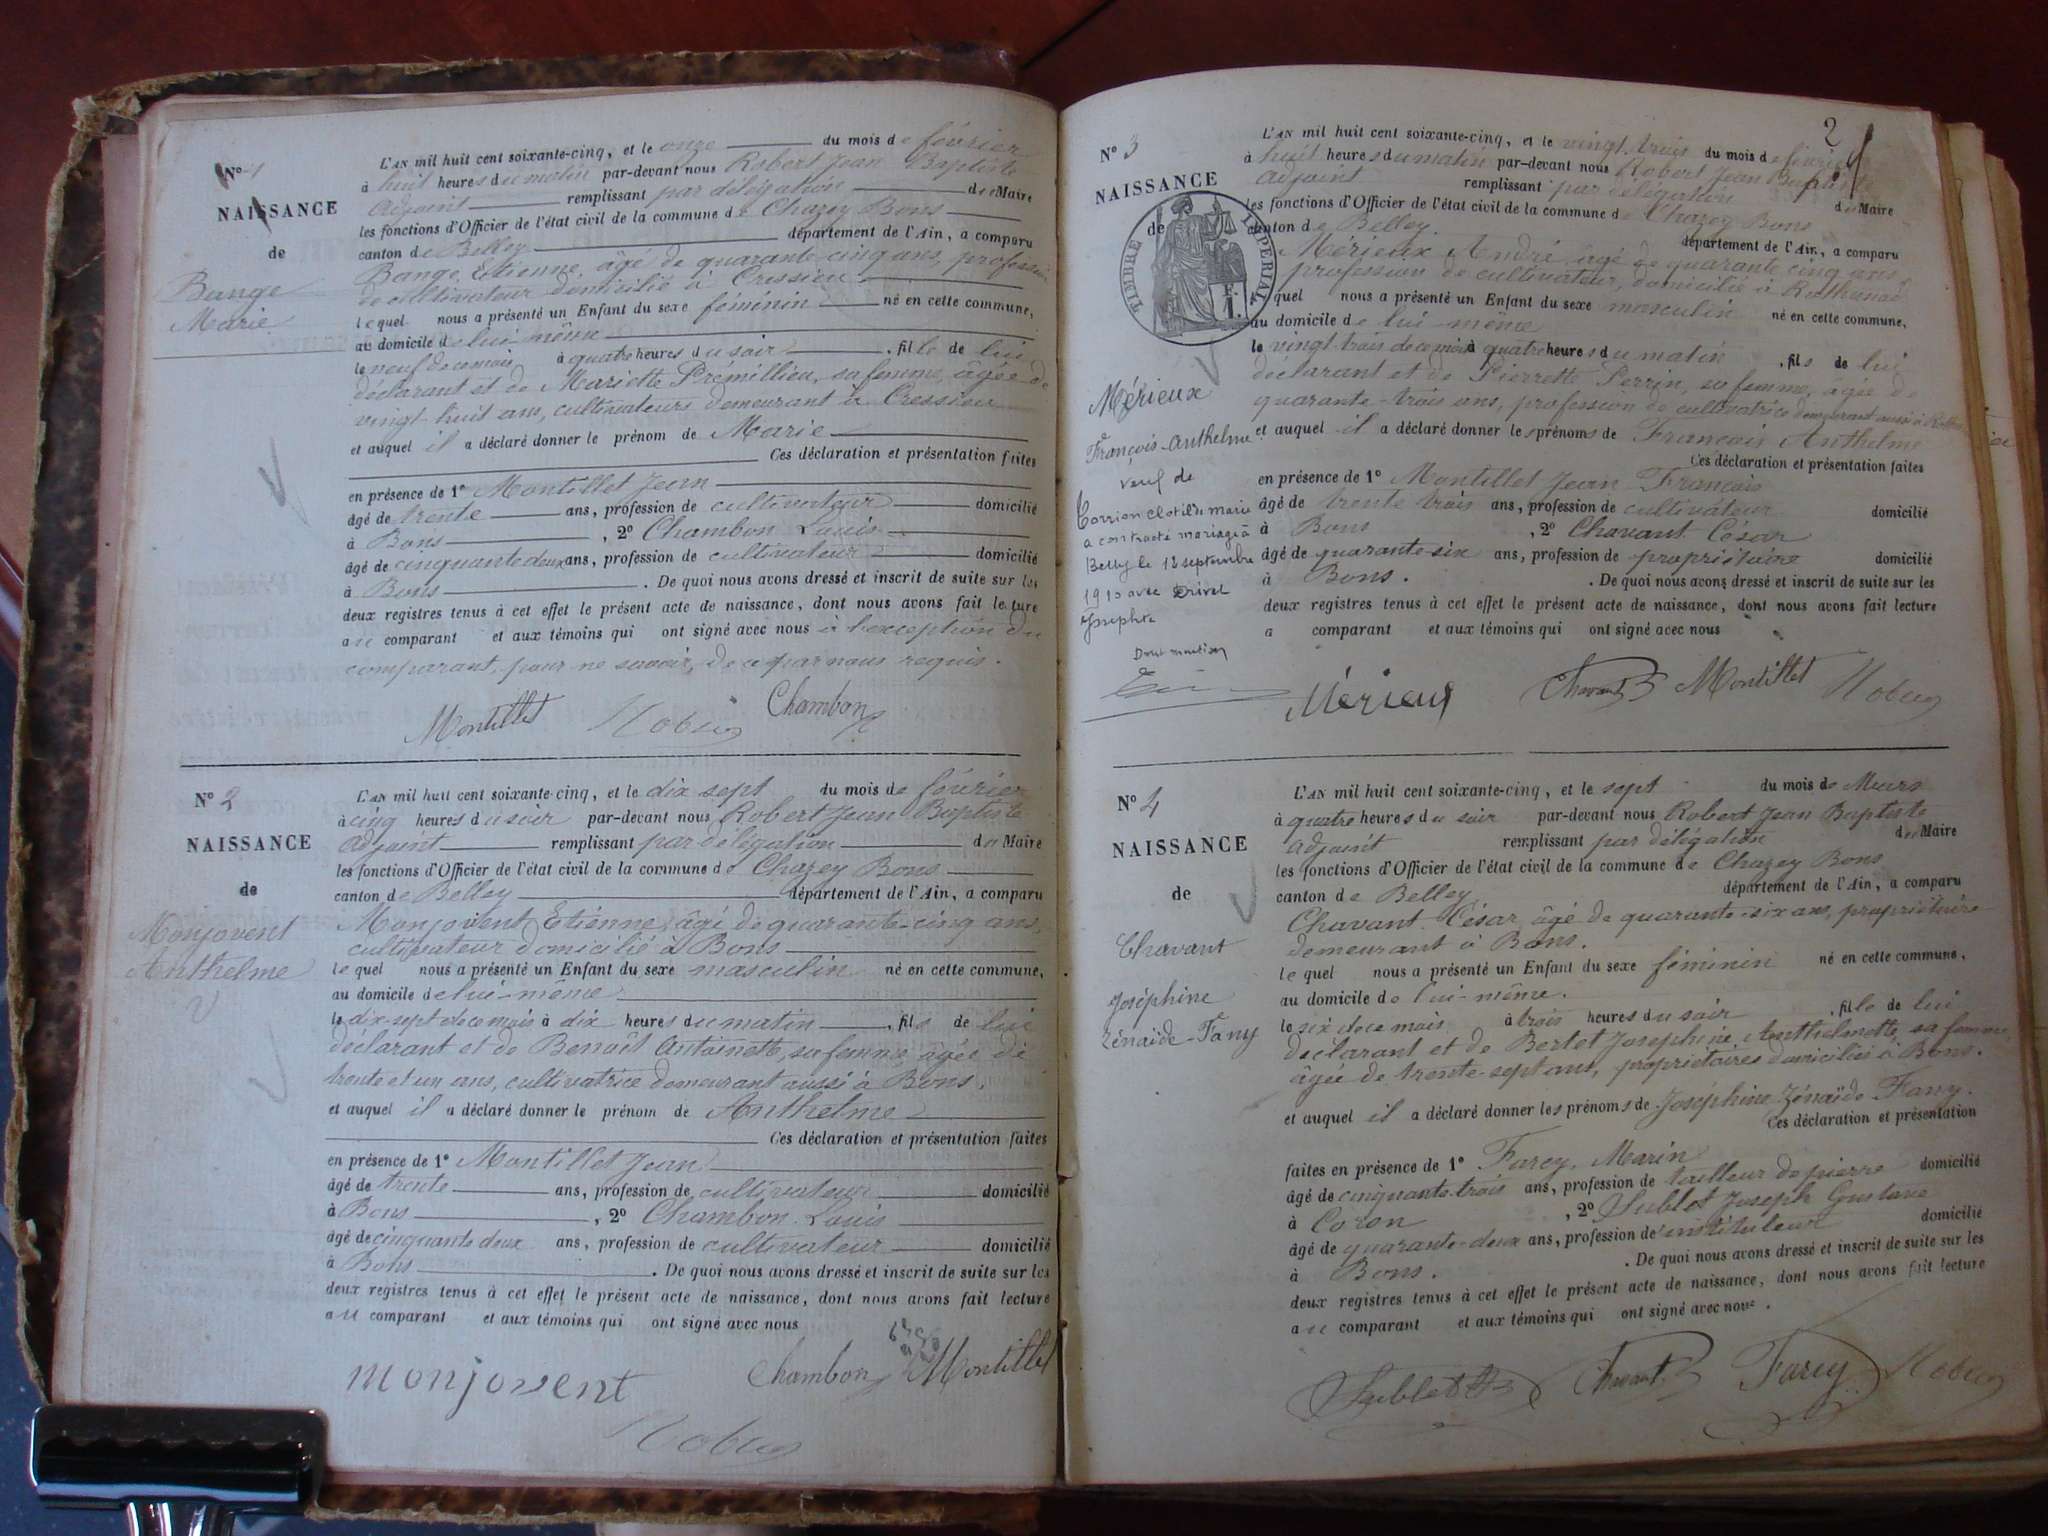 N° 1
NAISSANCE
de
Bange
Marie
L'AN mil huit cent soixante-cinq, et le onze du mois de février
à huit heures du matin par-devant nous Robert Jean Baptiste
adjoint remplissant par délégation du Maire
les fonctions d'Officier de l'état civil de la commune de Chazey Bons
canton de Belley département de l'Ain, a comparu
Bange Etienne, âgé de quarante cinq ans, profession
de cultivateur domicilié à Cressieu
lequel nous a présenté un Enfant du sexe féminin né en cette commune,
au domicile de lui-même
le neuf de ce mois à quatre heures du soir, fille de lui
déclarant et de Mariette Premillieu, sa femme, âgée de
vingt-huit ans, cultivateurs demeurant à Cressieu
et auquel il a déclaré donner le prénom de Marie
Ces déclaration et présentation faites
en présence de 1° Montillet Jean
âgé de trente ans, profession de cultivateur domicilié
à Bons, 2° Chambon Louis
âgé de cinquante deux ans, profession de cultivateur domicilié
à Bons. De quoi nous avons dressé et inscrit de suite sur les
deux registres tenus à cet effet le présent acte de naissance, dont nous avons fait lecture
au comparant et aux témoins qui ont signé avec nous à l'exception du
comparant, pour ne savoir, de ce par nous requis.
Montillet Robert Chambon
N° 2
NAISSANCE
de
Monjovent
Anthelme
L'AN mil huit cent soixante-cinq, et le dix sept du mois de février
à cinq heures du soir par-devant nous Robert Jean Baptiste
adjoint remplissant par délégation du Maire
les fonctions d'Officier de l'état civil de la commune de Chazey Bons
canton de Belley département de l'Ain, a comparu
Monjovent Etienne, âgé de quarante-cinq ans,
cultivateur domicilié à Bons
lequel nous a présenté un Enfant du sexe masculin né en cette commune,
au domicile de lui-même
le dix-sept de ce mois à dix heures du matin, fils de lui
déclarant et de Benoît Antoinette, sa femme âgée de
trente et un ans, cultivatrice demeurant aussi à Bons.
et auquel il a déclaré donner le prénom de Anthelme
Ces déclaration et présentation faites
en présence de 1° Montillet Jean
âgé de trente ans, profession de cultivateur domicilié
à Bons, 2° Chambon Louis
âgé de cinquante deux ans, profession de cultivateur domicilié
à Bons. De quoi nous avons dressé et inscrit de suite sur les
deux registres tenus à cet effet le présent acte de naissance, dont nous avons fait lecture
au comparant et aux témoins qui ont signé avec nous
monjovent Chambon Montillet
Robert
2
N° 3
NAISSANCE
de
TIMBRE IMPERIAL
Mérieux
François-Anthelme
veuf de
Clotilde marie
a contracté mariage à
Belley le 12 septembre
1910 avec Drivet
Josephte
Dont mention
L'AN mil huit cent soixante-cinq, et le vingt trois du mois de février
à huit heures du matin par-devant nous Robert Jean Baptiste
adjoint remplissant par délégation du Maire
les fonctions d'Officier de l'état civil de la commune de Chazey Bons
canton de Belley. département de l'Ain, a comparu
Mérieux André âgé de quarante cinq ans
profession de cultivateur, domicilié à
quel nous a présenté un Enfant du sexe masculin né en cette commune,
au domicile de lui-même
le vingt-trois de ce mois à quatre heures du matin, fils de lui
déclarant et de Pierrette Perrin, sa femme, âgée de
quarante-trois ans, profession de cultivatrice demeurant aussi à
et auquel il a déclaré donner les prénoms de François Anthelme
Ces déclaration et présentation faites
en présence de 1° Montillet Jean François
âgé de trente trois ans, profession de cultivateur domicilié
à Bons, 2° Chavant César
âgé de quarante-six ans, profession de propriétaire domicilié
à Bons. De quoi nous avons dressé et inscrit de suite sur les
deux registres tenus à cet effet le présent acte de naissance, dont nous avons fait lecture
a comparant et aux témoins qui ont signé avec nous
Mérieux Chavant Montillet Robert
N° 4
NAISSANCE
de
Chavant
Joséphine
Zénaïde-Fany
L'AN mil huit cent soixante-cinq, et le sept du mois de Mars
à quatre heures du soir par-devant nous Robert Jean Baptiste
adjoint remplissant par délégation du Maire
les fonctions d'Officier de l'état civil de la commune de Chazey Bons
canton de Belley département de l'Ain, a comparu
Chavant César, âgé de quarante-six ans, propriétaire
demeurant à Bons.
lequel nous a présenté un Enfant du sexe féminin né en cette commune,
au domicile de lui-même.
le six de ce mois à trois heures du soir, fille de lui
déclarant et de Berlet Josephine Anthelmette, sa femme
âgée de trente-sept ans, propriétaires domiciliés à Bons.
et auquel il a déclaré donner les prénoms de Joséphine Zénaïde Fany.
Ces déclaration et présentation
faites en présence de 1° Farcy, Marin
âgé de cinquante-trois ans, profession de tailleur de pierre domicilié
à Coron, 2° Sublet Joseph Gustave
âgé de quarante-deux ans, profession d'instituteur domicilié
à Bons. De quoi nous avons dressé et inscrit de suite sur les
deux registres tenus à cet effet le présent acte de naissance, dont nous avons fait lecture
au comparant et aux témoins qui ont signé avec nous.
Sublet Chavant Farcy Robert